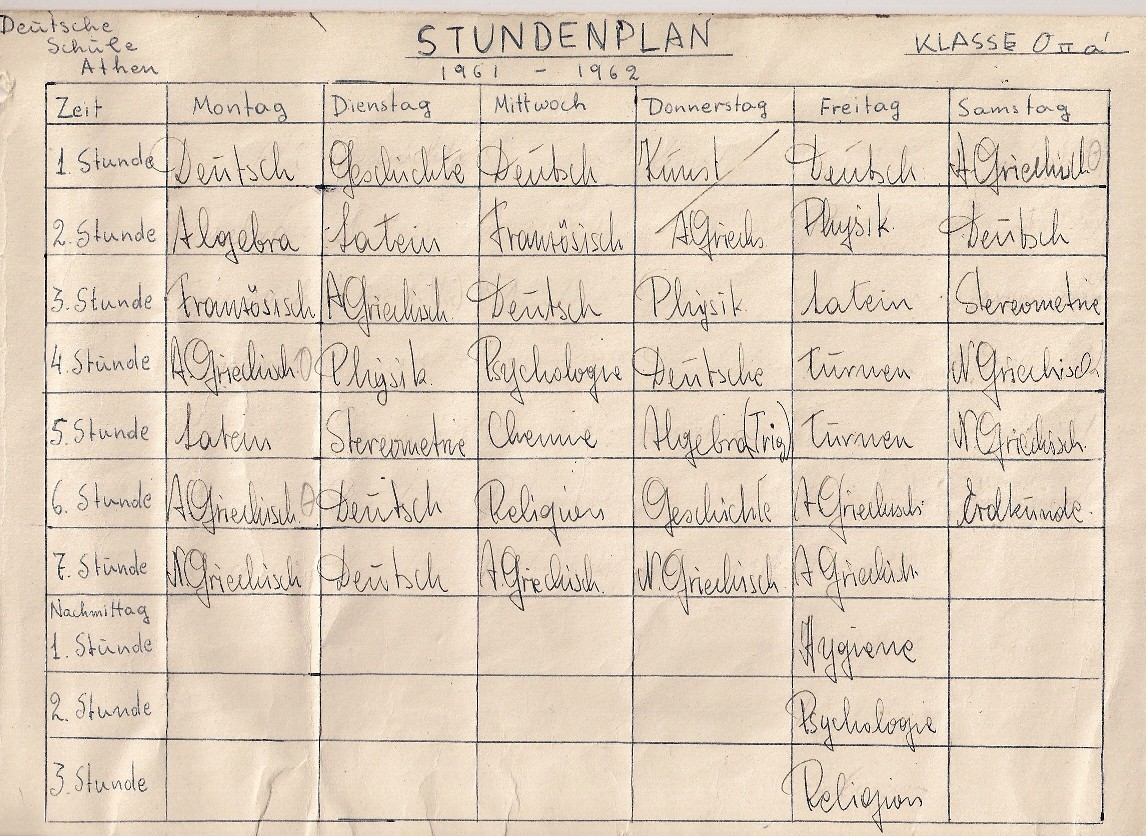 Deutsche
Schule
Athen
STUNDENPLAN
1961 - 1962
KLASSE O II a'
Zeit Montag Dienstag Mittwoch Donnerstag Freitag Samstag
1. Stunde Deutsch Geschichte Deutsch Kunst Deutsch AGriechisch
2. Stunde Algebra Latein Französisch AGriech. Physik Deutsch
3. Stunde Französisch AGriechisch Deutsch Physik Latein Stereometrie
4. Stunde AGriechisch Physik Psychologie Deutsche Turnen NGriechisch
5. Stunde Latein Stereometrie Chemie Algebra(Trig) Turnen NGriechisch
6. Stunde AGriechisch Deutsch Religion Geschichte AGriechisch Erdkunde
7. Stunde NGriechisch Deutsch AGriechisch NGriechisch AGriechisch
Nachmittag
1. Stunde Hygiene
2. Stunde Psychologie
3. Stunde Religion